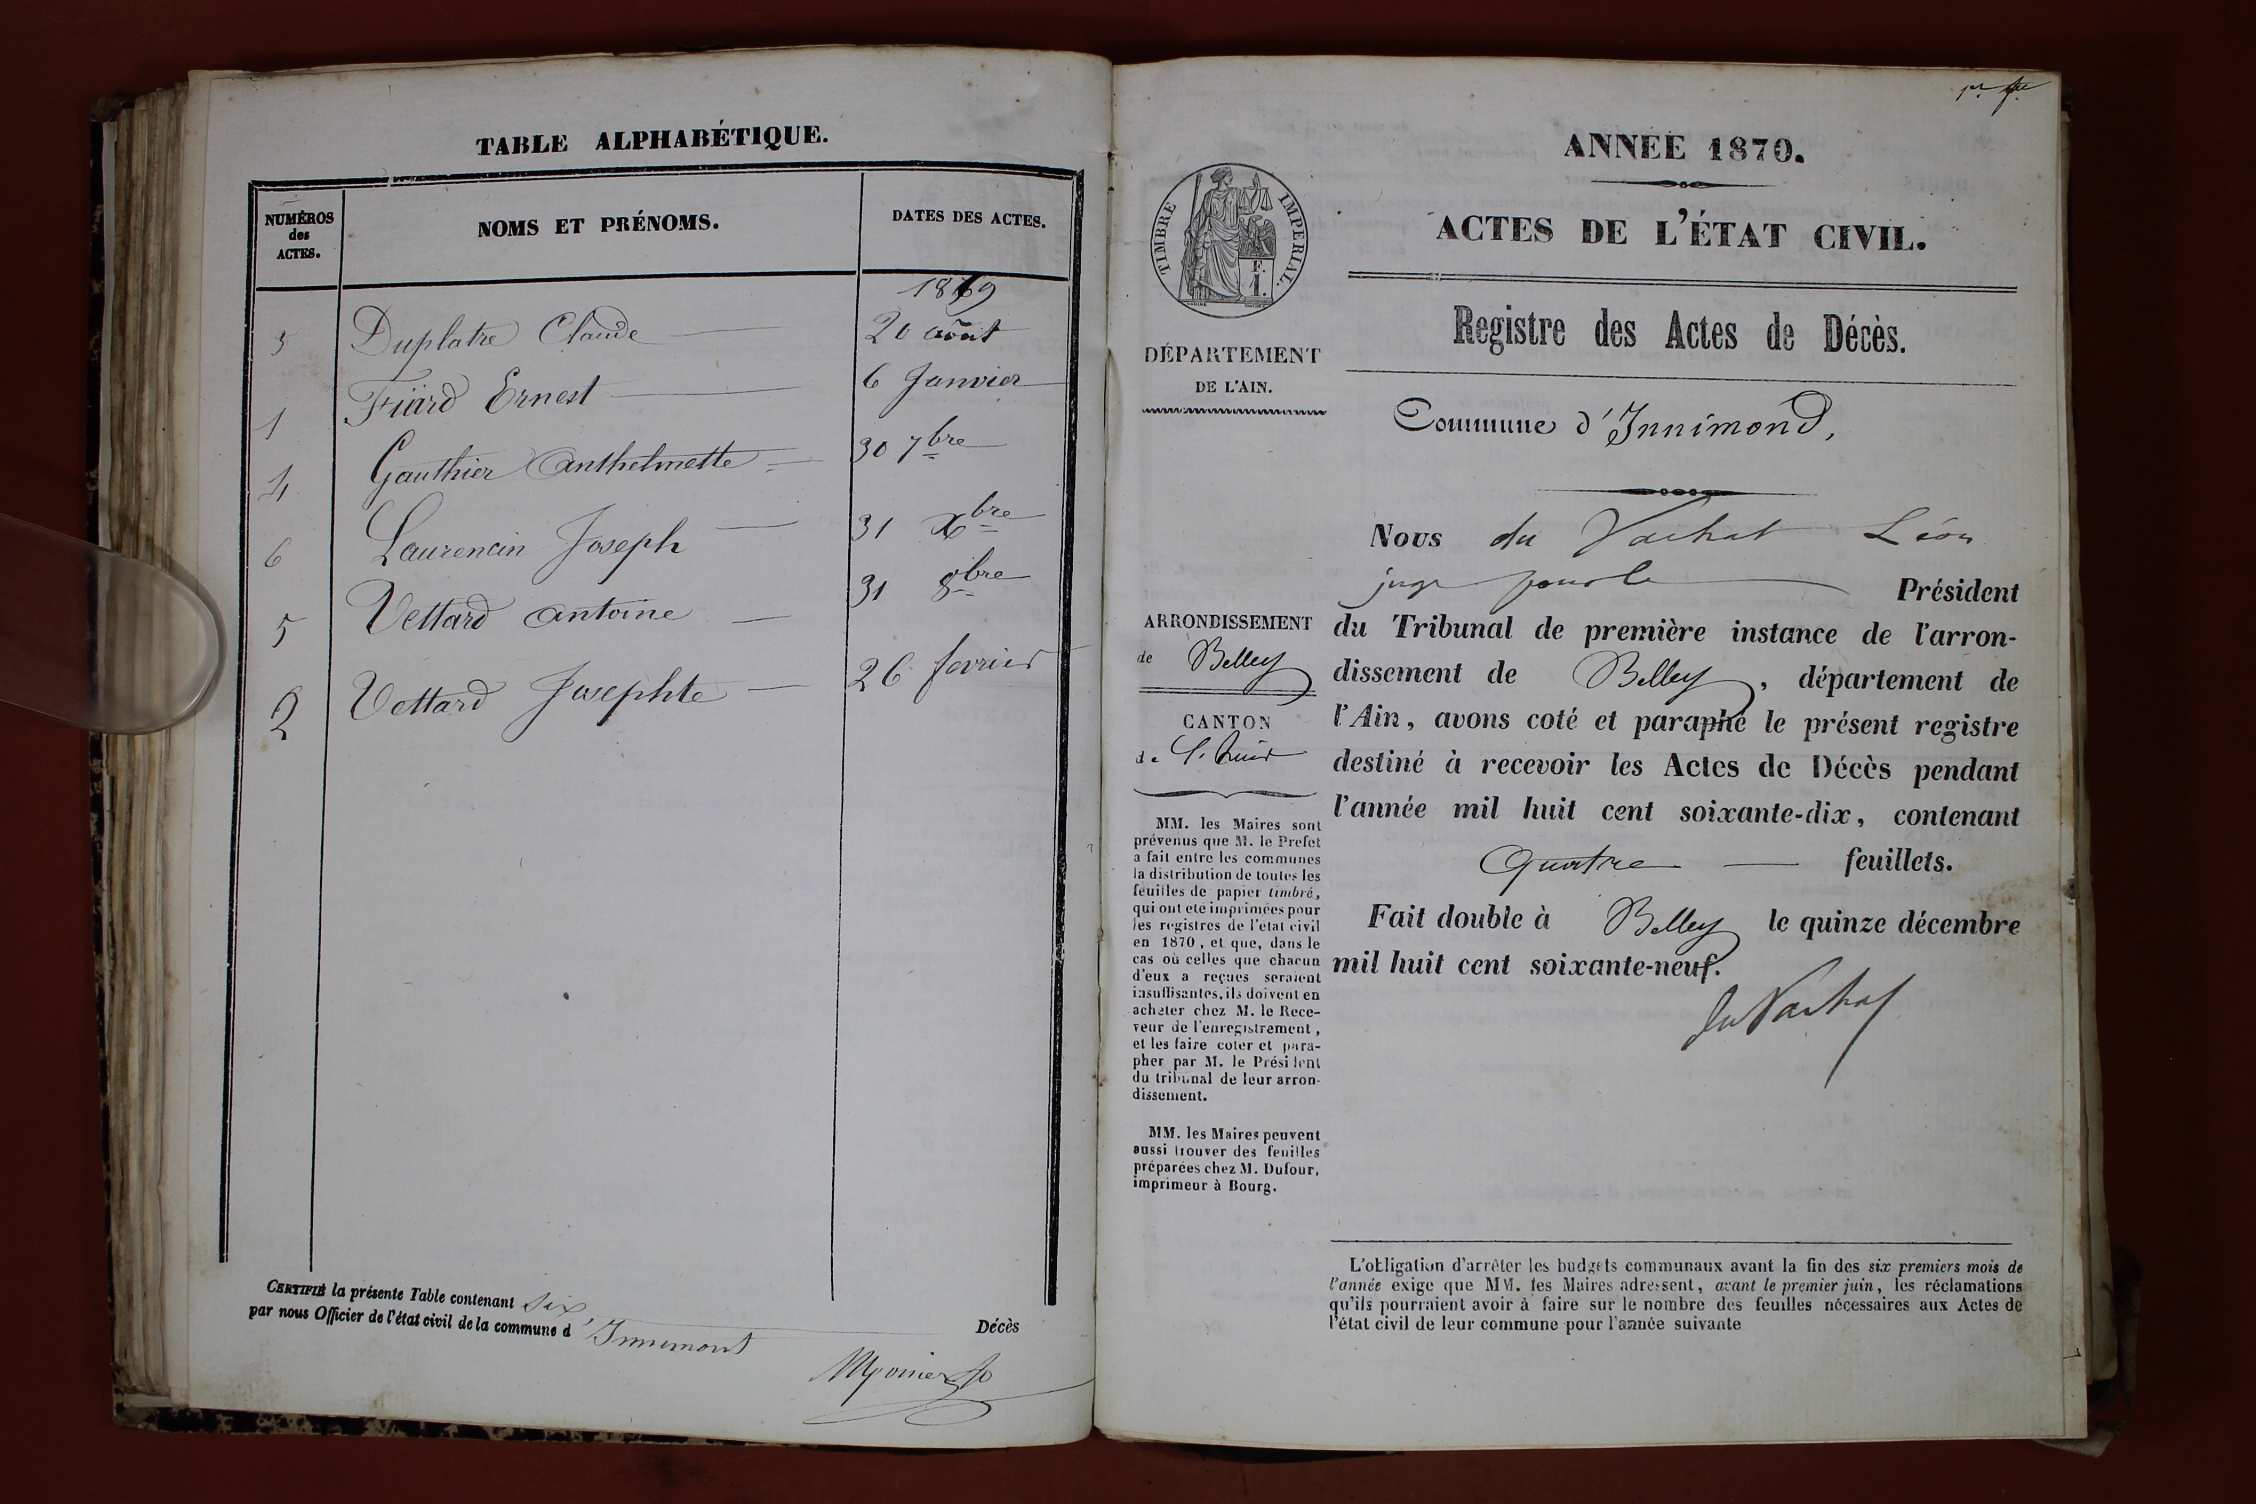 TABLE ALPHABÉTIQUE.
NUMÉROS
des
ACTES.
NOMS ET PRÉNOMS.
DATES DES ACTES.
1869
3 Duplatre Claude 20 août
1 Fiard Ernest 6 Janvier
4 Gauthier Anthelmette 30 7bre
6 Laurencin Joseph 31 Xbre
5 Vettard Antoine 31 8bre
2 Vettard Josephte 26 fevrier
CERTIFIÉ la présente Table contenant six Décès
par nous Officier de l'état civil de la commune d'Innimont
ANNÉE 1870.
ACTES DE L'ÉTAT CIVIL.
TIMBRE IMPÉRIAL.
F.
1.
Registre des Actes de Décès.
DÉPARTEMENT
DE L'AIN.
Commune d'Innimond,
Nous du Vachat Léon
juge pour le Président
du Tribunal de première instance de l'arron-
dissement de Belley, département de
l'Ain, avons coté et paraphé le présent registre
destiné à recevoir les Actes de Décès pendant
l'année mil huit cent soixante-dix, contenant
Quatre feuillets.
Fait double à Belley le quinze décembre
mil huit cent soixante-neuf.
du Vachat
ARRONDISSEMENT
de Belley
CANTON
de
MM. les Maires sont
prévenus que M. le Prefet
a fait entre les communes
la distribution de toutes les
feuilles de papier timbré,
qui ont eté imprimées pour
les registres de l'état civil
en 1870, et que, dans le
cas où celles que chacun
d'eux a reçues seraient
insuffisantes, ils doivent en
acheter chez M. le Rece-
veur de l'enregistrement,
et les faire coter et para-
pher par M. le Président
du tribunal de leur arron-
dissement.
MM. les Maires peuvent
aussi trouver des feuilles
préparées chez M. Dufour,
imprimeur à Bourg.
L'obligation d'arrêter les budgets communaux avant la fin des six premiers mois de
l'année exige que MM. les Maires adressent, avant le premier juin, les réclamations
qu'ils pourraient avoir à faire sur le nombre des feuilles nécessaires aux Actes de
l'état civil de leur commune pour l'année suivante